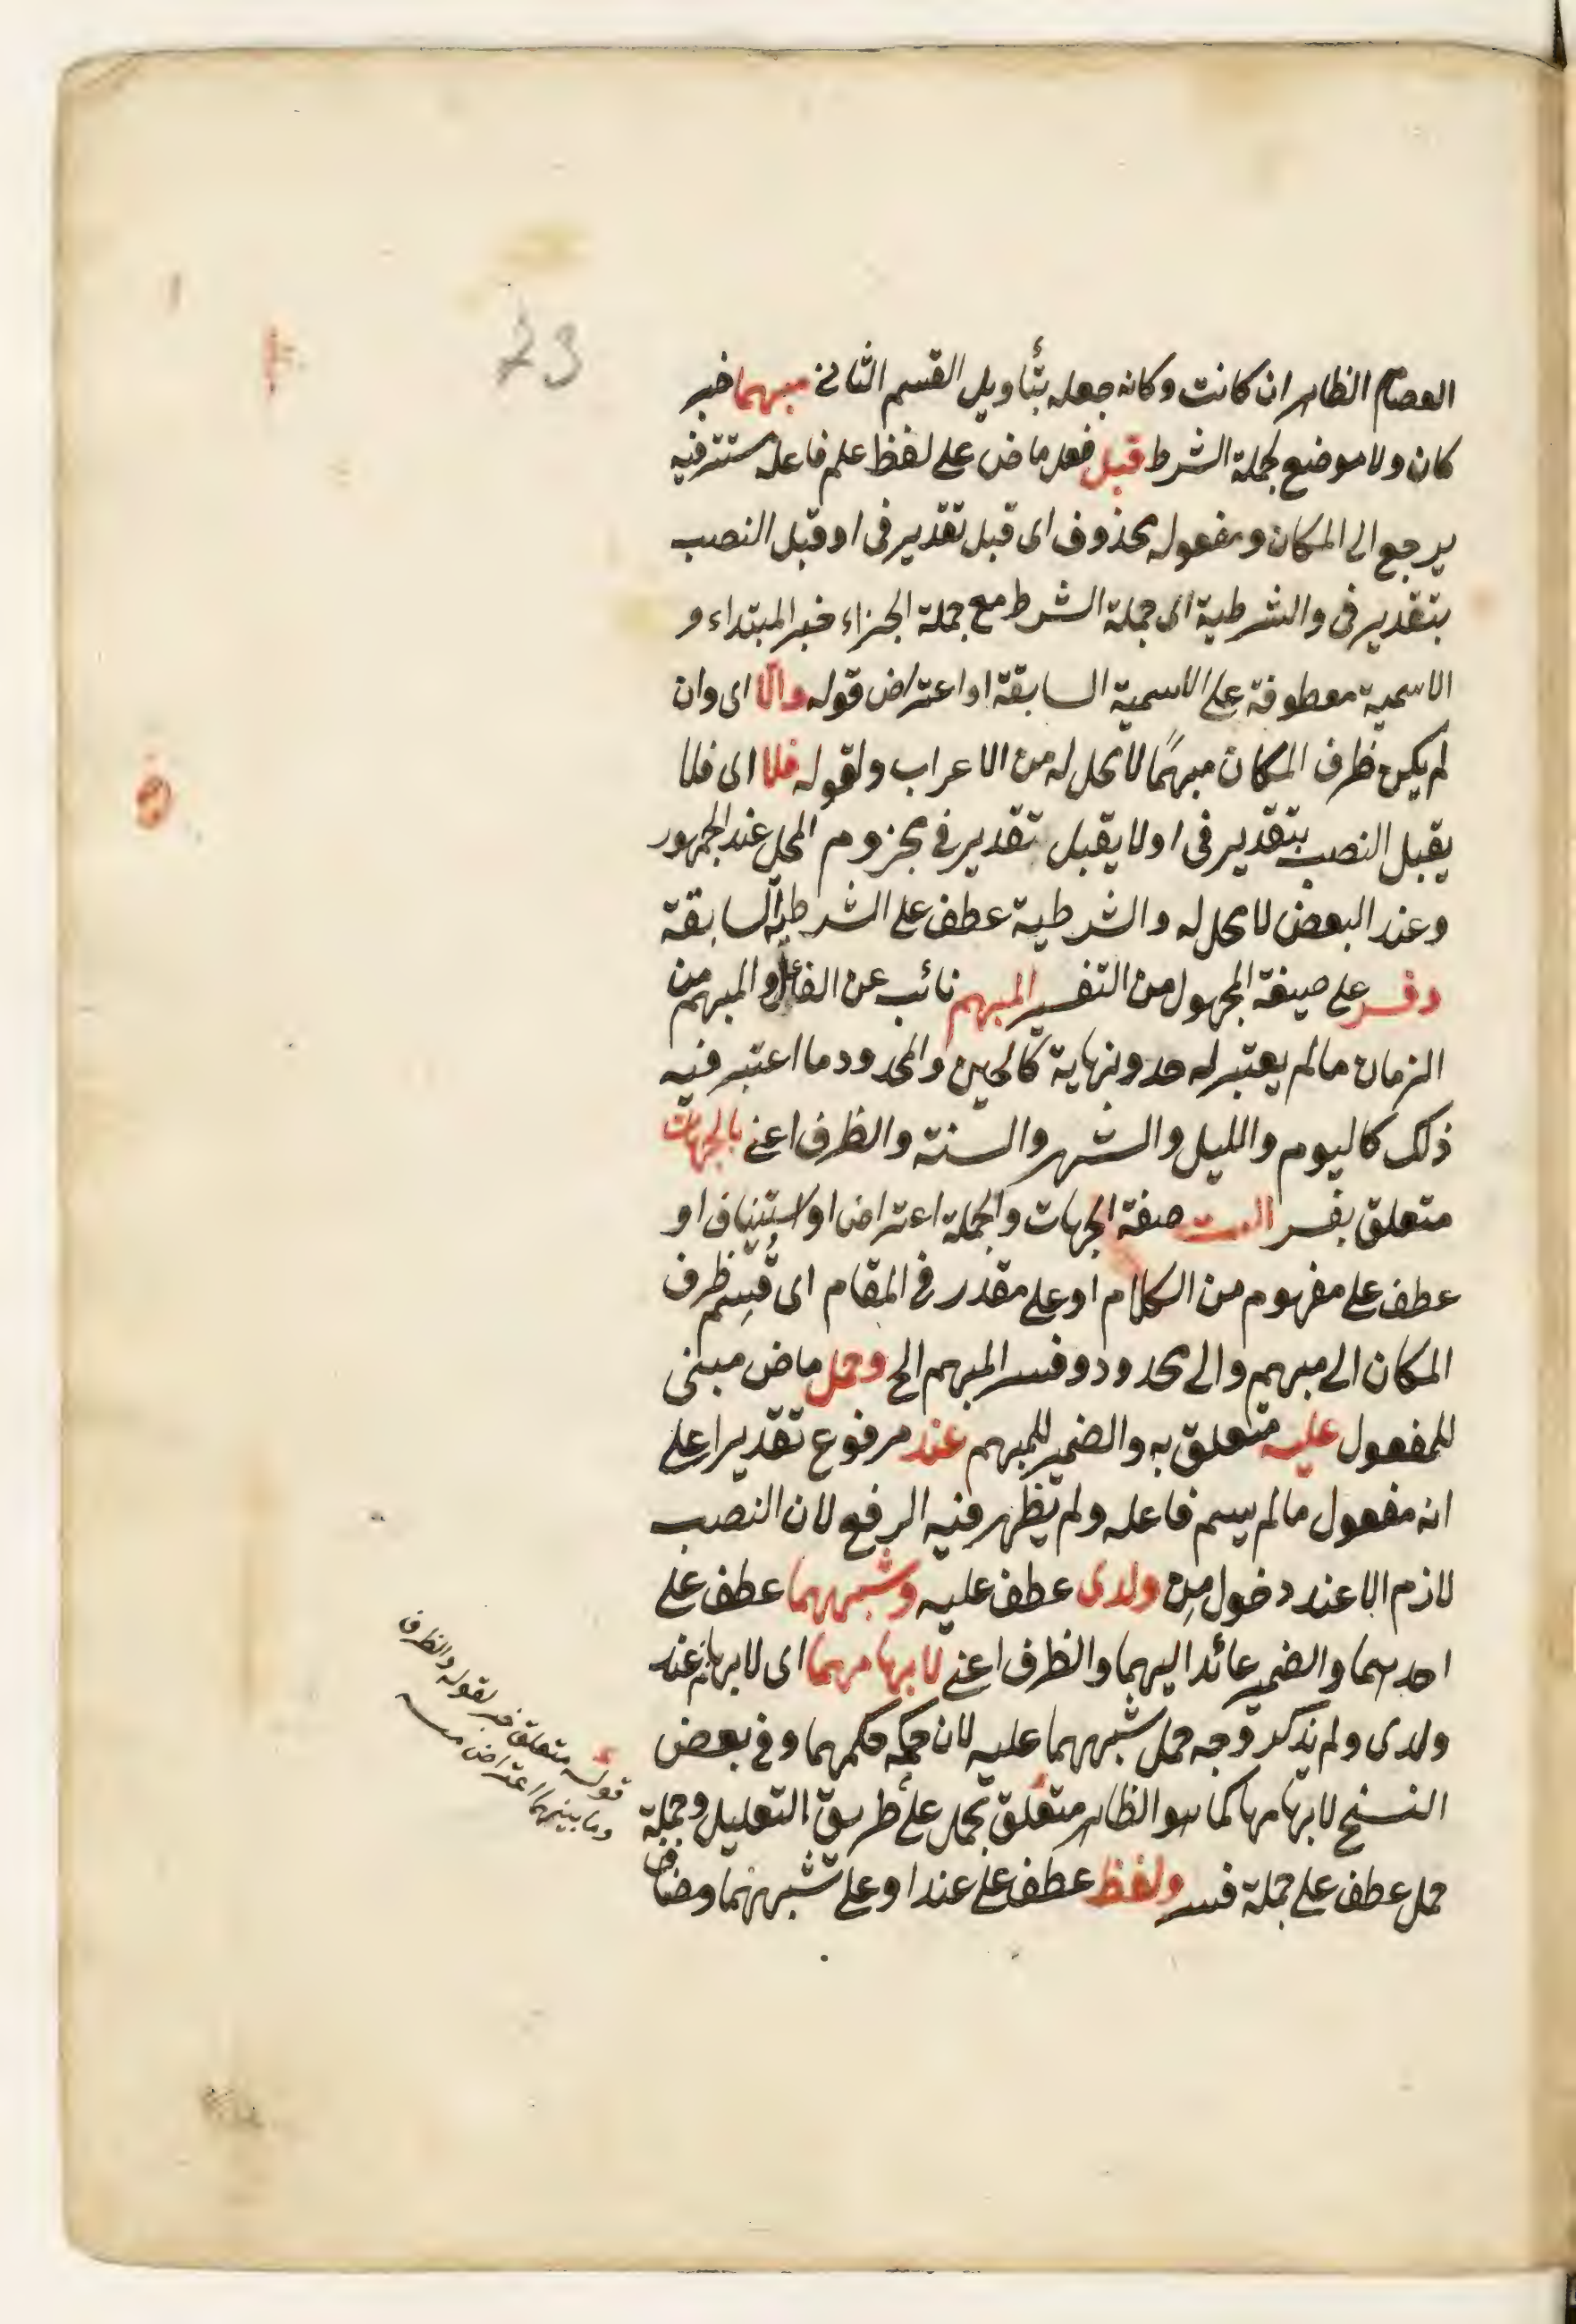 73
العصام الظاهر ان كانت وكانه جعله بتأويل القسم الثاني مبهما خبر
كان ولا موضع لجملة الشرط قبل فعل ماض على لفظ علم فاعله مستتر فيه
يرجع الى المكان ومفعوله محذوف اى قبل تقدير فى او قبل النصب
بتقدير فى والشرطية اى جملة الشرط مع جملة الجزاء خبر المبتداء و
الاسمية معطوفة على الاسمية السابقة او اعتراض قوله والّا اى وان
لم يكن ظرف المكان مبهمًا لا محل له من الاعراب ولقوله فلا اى فلا
يقبل النصب بتقدير فى او لا يقبل تقدير فى مجزوم المحل عند الجمهور
وعند البعض لا محل له والشرطية عطف على الشرطية السابقة
وفسر على صيغة المجهول من التفسير المبهم نائب عن الفاعل والمبهم من
الزمان ما لم يعتبر له حد ونهاية كالحين والمحدود ما اعتبر فيه
ذلك كاليوم والليل والشهر والسنة والظرف اعنى بالجهات
متعلق بفسر الست صفة الجهات والجملة اعتراض او استيناف او
عطف على مفهوم من الكلام او على مقدر فى المقام اى قُسِم ظرف
المكان الى مبهم والى محدود وفسر المبهم الخ وحمل ماض مبنى
للمفعول عليه متعلق به والضمير للمبهم عند مرفوع تقديرا على
انه مفعول ما لم يسم فاعله ولم يظهر فيه الرفع لان النصب
لازم الا عند دخول مِن ولدى عطف عليه وشبههما عطف على
احدهما والضمير عائد اليهما والظرف اعنى لابهامهما اى لابهام عند
ولدى ولم يذكر وجه حمل شبههما عليه لان حكمه حكمهما وفى بعض
النسخ لابهامها كما هو الظاهر متعلق بحمل على طريق التعليل وجملة
حمل عطف على جملة فسر ولفظ عطف على عند او على شبههما ومضاف
قوله متعلق خبر لقوله والظرف
وما بينهما اعتراض منه